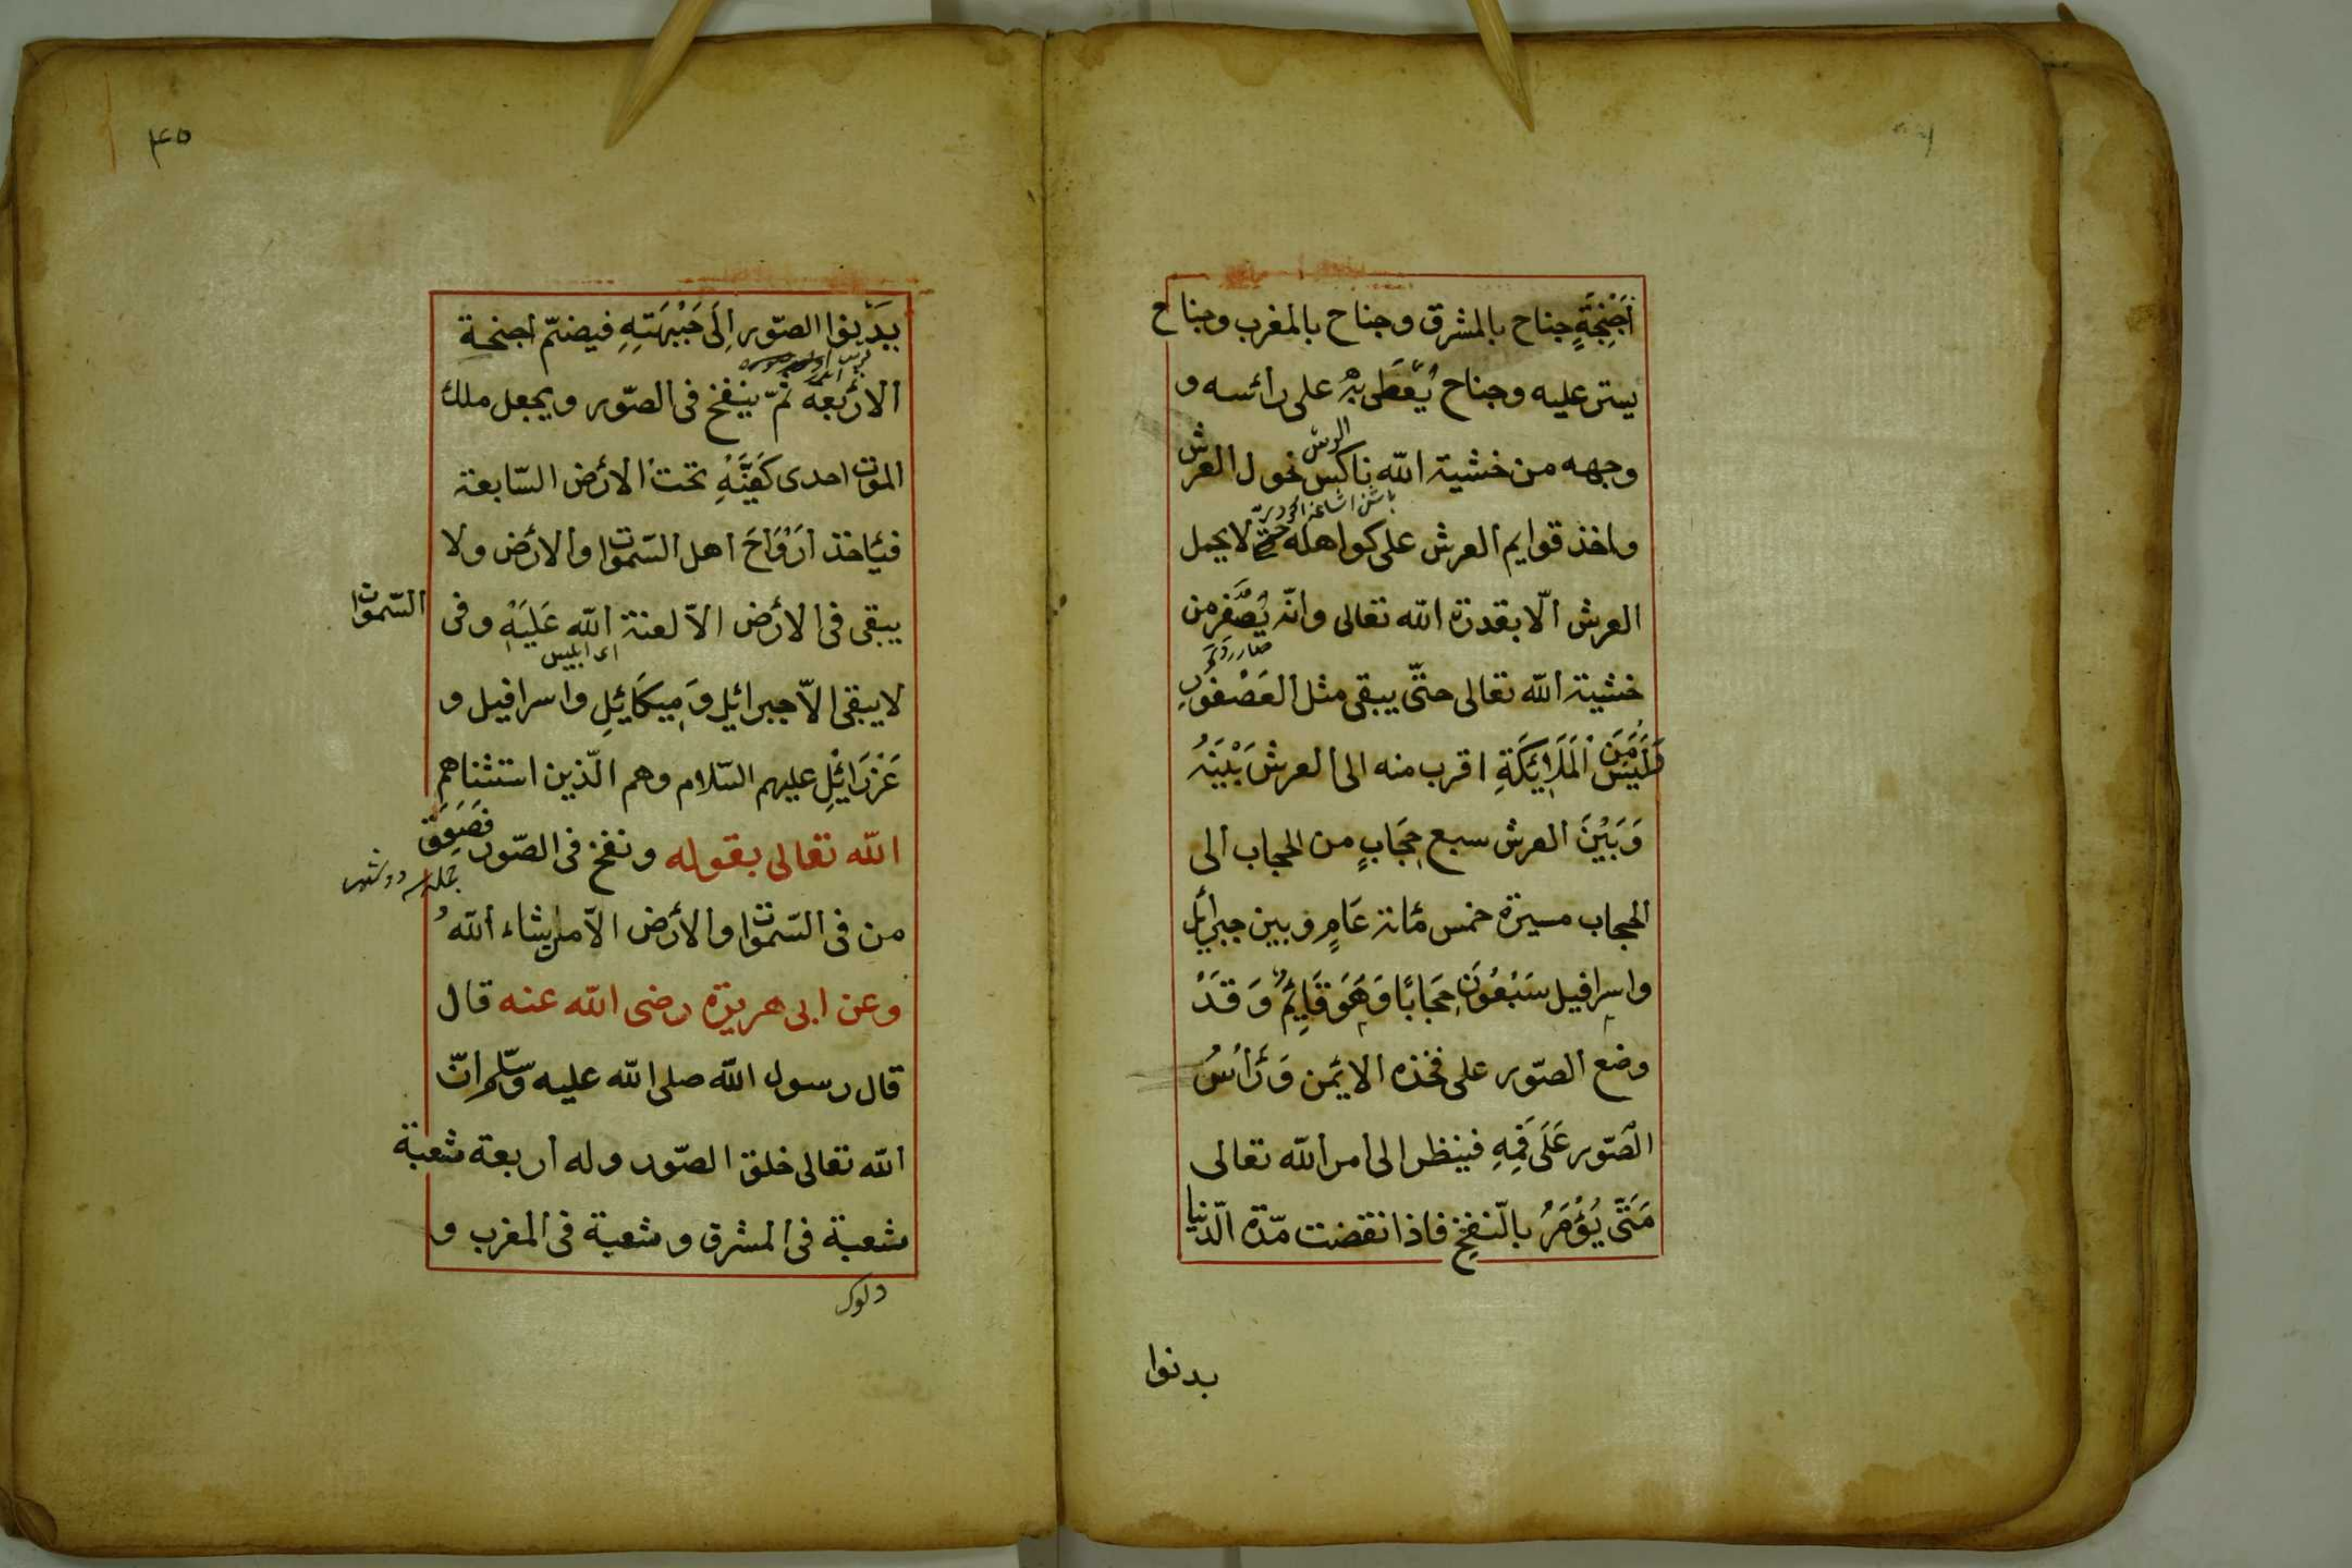 أَجْنِحَةٍ جناح بالمشرق وجناح بالمغرب وجناح
يستر عليه وجناح يُغَطى بِهْ على رائسه و
وجهه من خشية الله ناكس نحول العرش
واخذ قوايم العرش على كواهله حتى لا يحمل
العرش الّا بقدرة الله تعالى وانّه يُصَفَّر من
خشية الله تعالى حتّى يبقى مثل العَصْفُورِ
فَلَيْسَ مِنَ اْلمَلَائِكَةِ اقرب منه الى العرش بَيْنَهُ
وَبَيْنَ العرش سبع حِجَابٍ من الحجاب الى
الحجاب مسيرة خمس مائة عَامٍ وبين جبرائل
واسرافيل سَبْعُونَ حِجَابًا وَهُوَ قَايِمٌ وَقَدْ
وضع الصّور على فخذه الايمن وَرَأْسُ
الصّور عَلَى فَمِهِ فينظر الى امر الله تعالى
مَتَى يُؤْمَرُ بالنّفخ فاذا انقضت مّدة الّدنيا
بدنوا
۴۵
يَدْنوا الصّور اِلَى جَبْهَتِهِ فيضمّ اجنحة
الاربعة ثمّ ينفخ فى الصّور ويجعل ملك
الموت احدى كَفَّيْهِ تحت الأرض السّابعة
فيأخذ اَرْوَاحَ اهل السّموات والارض ولا
يبقى فى الارض الاّ لعنة الله عَلَيْهِ وفى السّموات
اى ابليس
لا يبقى الاّ جبرائيل وَمِيكَائِلِ واسرافيل و
عَزْرَائِلِ عليهم السّلام وهم الّذين استثناهم
الله تعالى بقوله ونفخ فى الصّور فَصَعِقَ
من فى السّموات والأرض الاّ من يشاء اللهُ
وعن ابى هريرة رضى الله عنه قال
قال رسول الله صلى الله عليه وسّلم انّ
الله تعالى خلق الصّور وله اربعة شعبة
شعبة فى المشرق وشعبة فى المغرب و